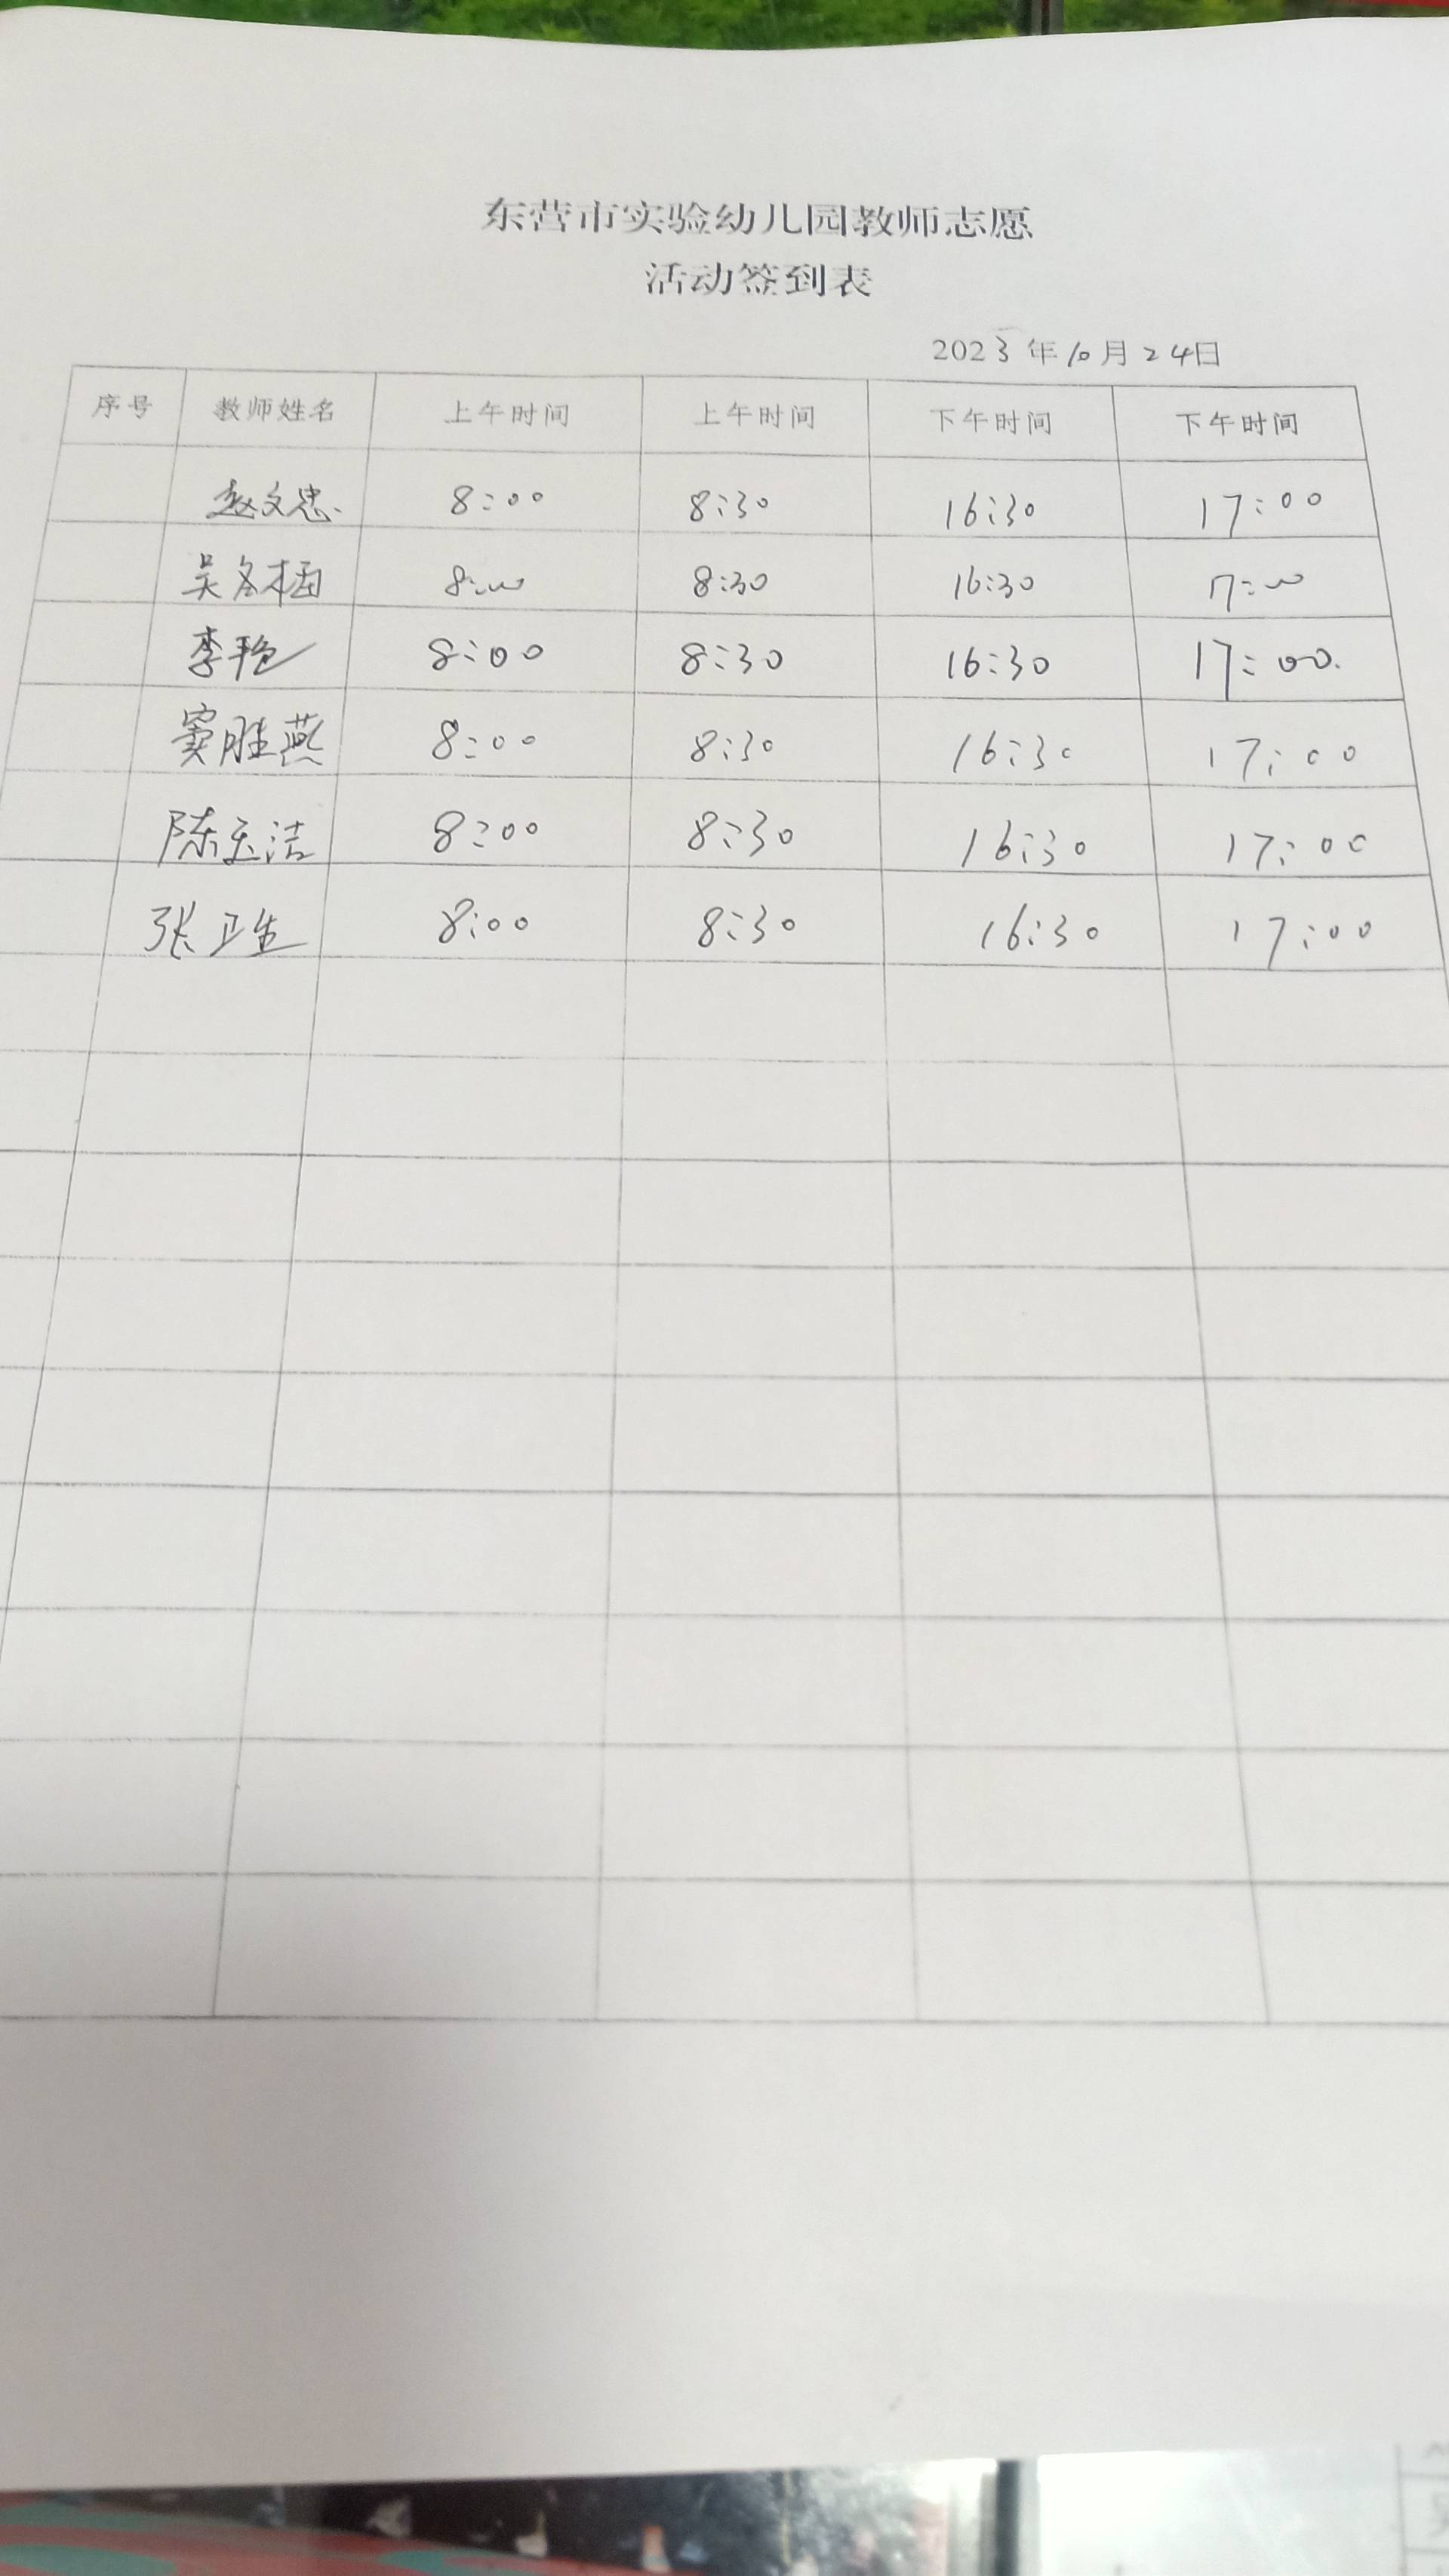 东营市实验幼儿园教师志愿
活动签到表
2023年10月24日
序号 教师姓名 上午时间 上午时间 下午时间 下午时间
赵文忠 8:00 8:30 16:30 17:00
吴冬梅 8:00 8:30 16:30 17:00
李艳 8:00 8:30 16:30 17:00.
窦胜燕 8:00 8:30 16:30 17:00
陈玉洁 8:00 8:30 16:30 17:00
张卫生 8:00 8:30 16:30 17:00